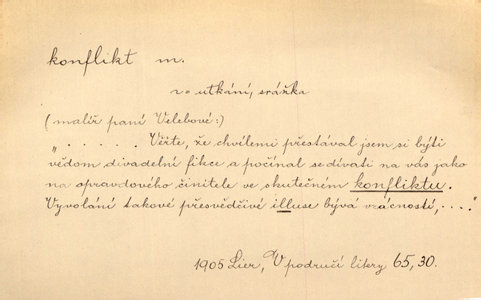 konflikt m.
utkání, srážka
(malíř paní Velebové:)
„ . . . . . Věřte, že chvílemi přestával jsem si býti
vědom divadelní fikce a počínal se dívati na vás jako
na opravdového činitele ve skutečném konfliktu.
Vyvolání takové přesvědčivé illuse bývá vzácností, . . . ."
1905 Lier, V područí likry 65, 30.